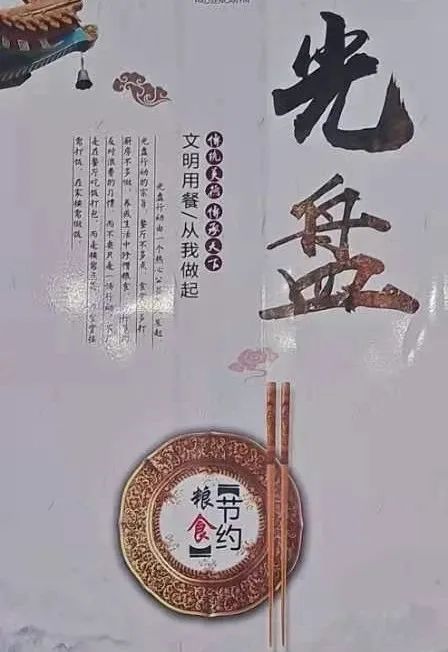 光盘
传统美德 传承天下
文明用餐/从我做起
光盘行动由一个热心公益
光盘行动的宗旨：餐厅不多点，食堂不多打
厨房不多做。养成生活中珍惜粮食
反对浪费的习惯，而不要只是一场行动
是在餐厅吃饭打包，而是按需点菜
需打饭，在家按需做饭
【节约
粮食】